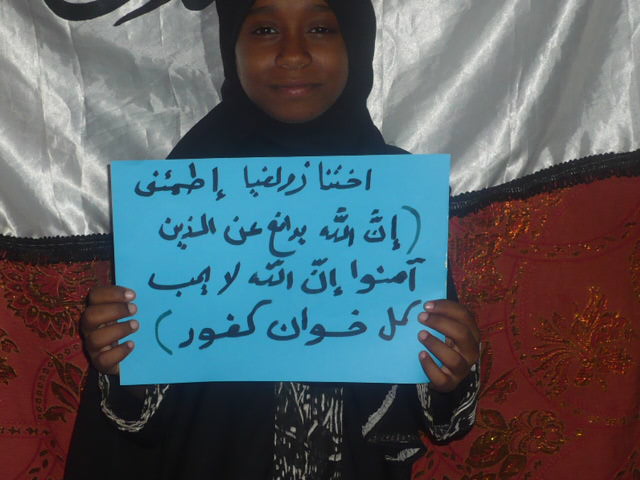 اختنا زولفيا إطمئنى
(إنَّ اللَّه يدافع عن الذين
آمنوا إنّ اللّه لا يحب
كل خوان كفور)